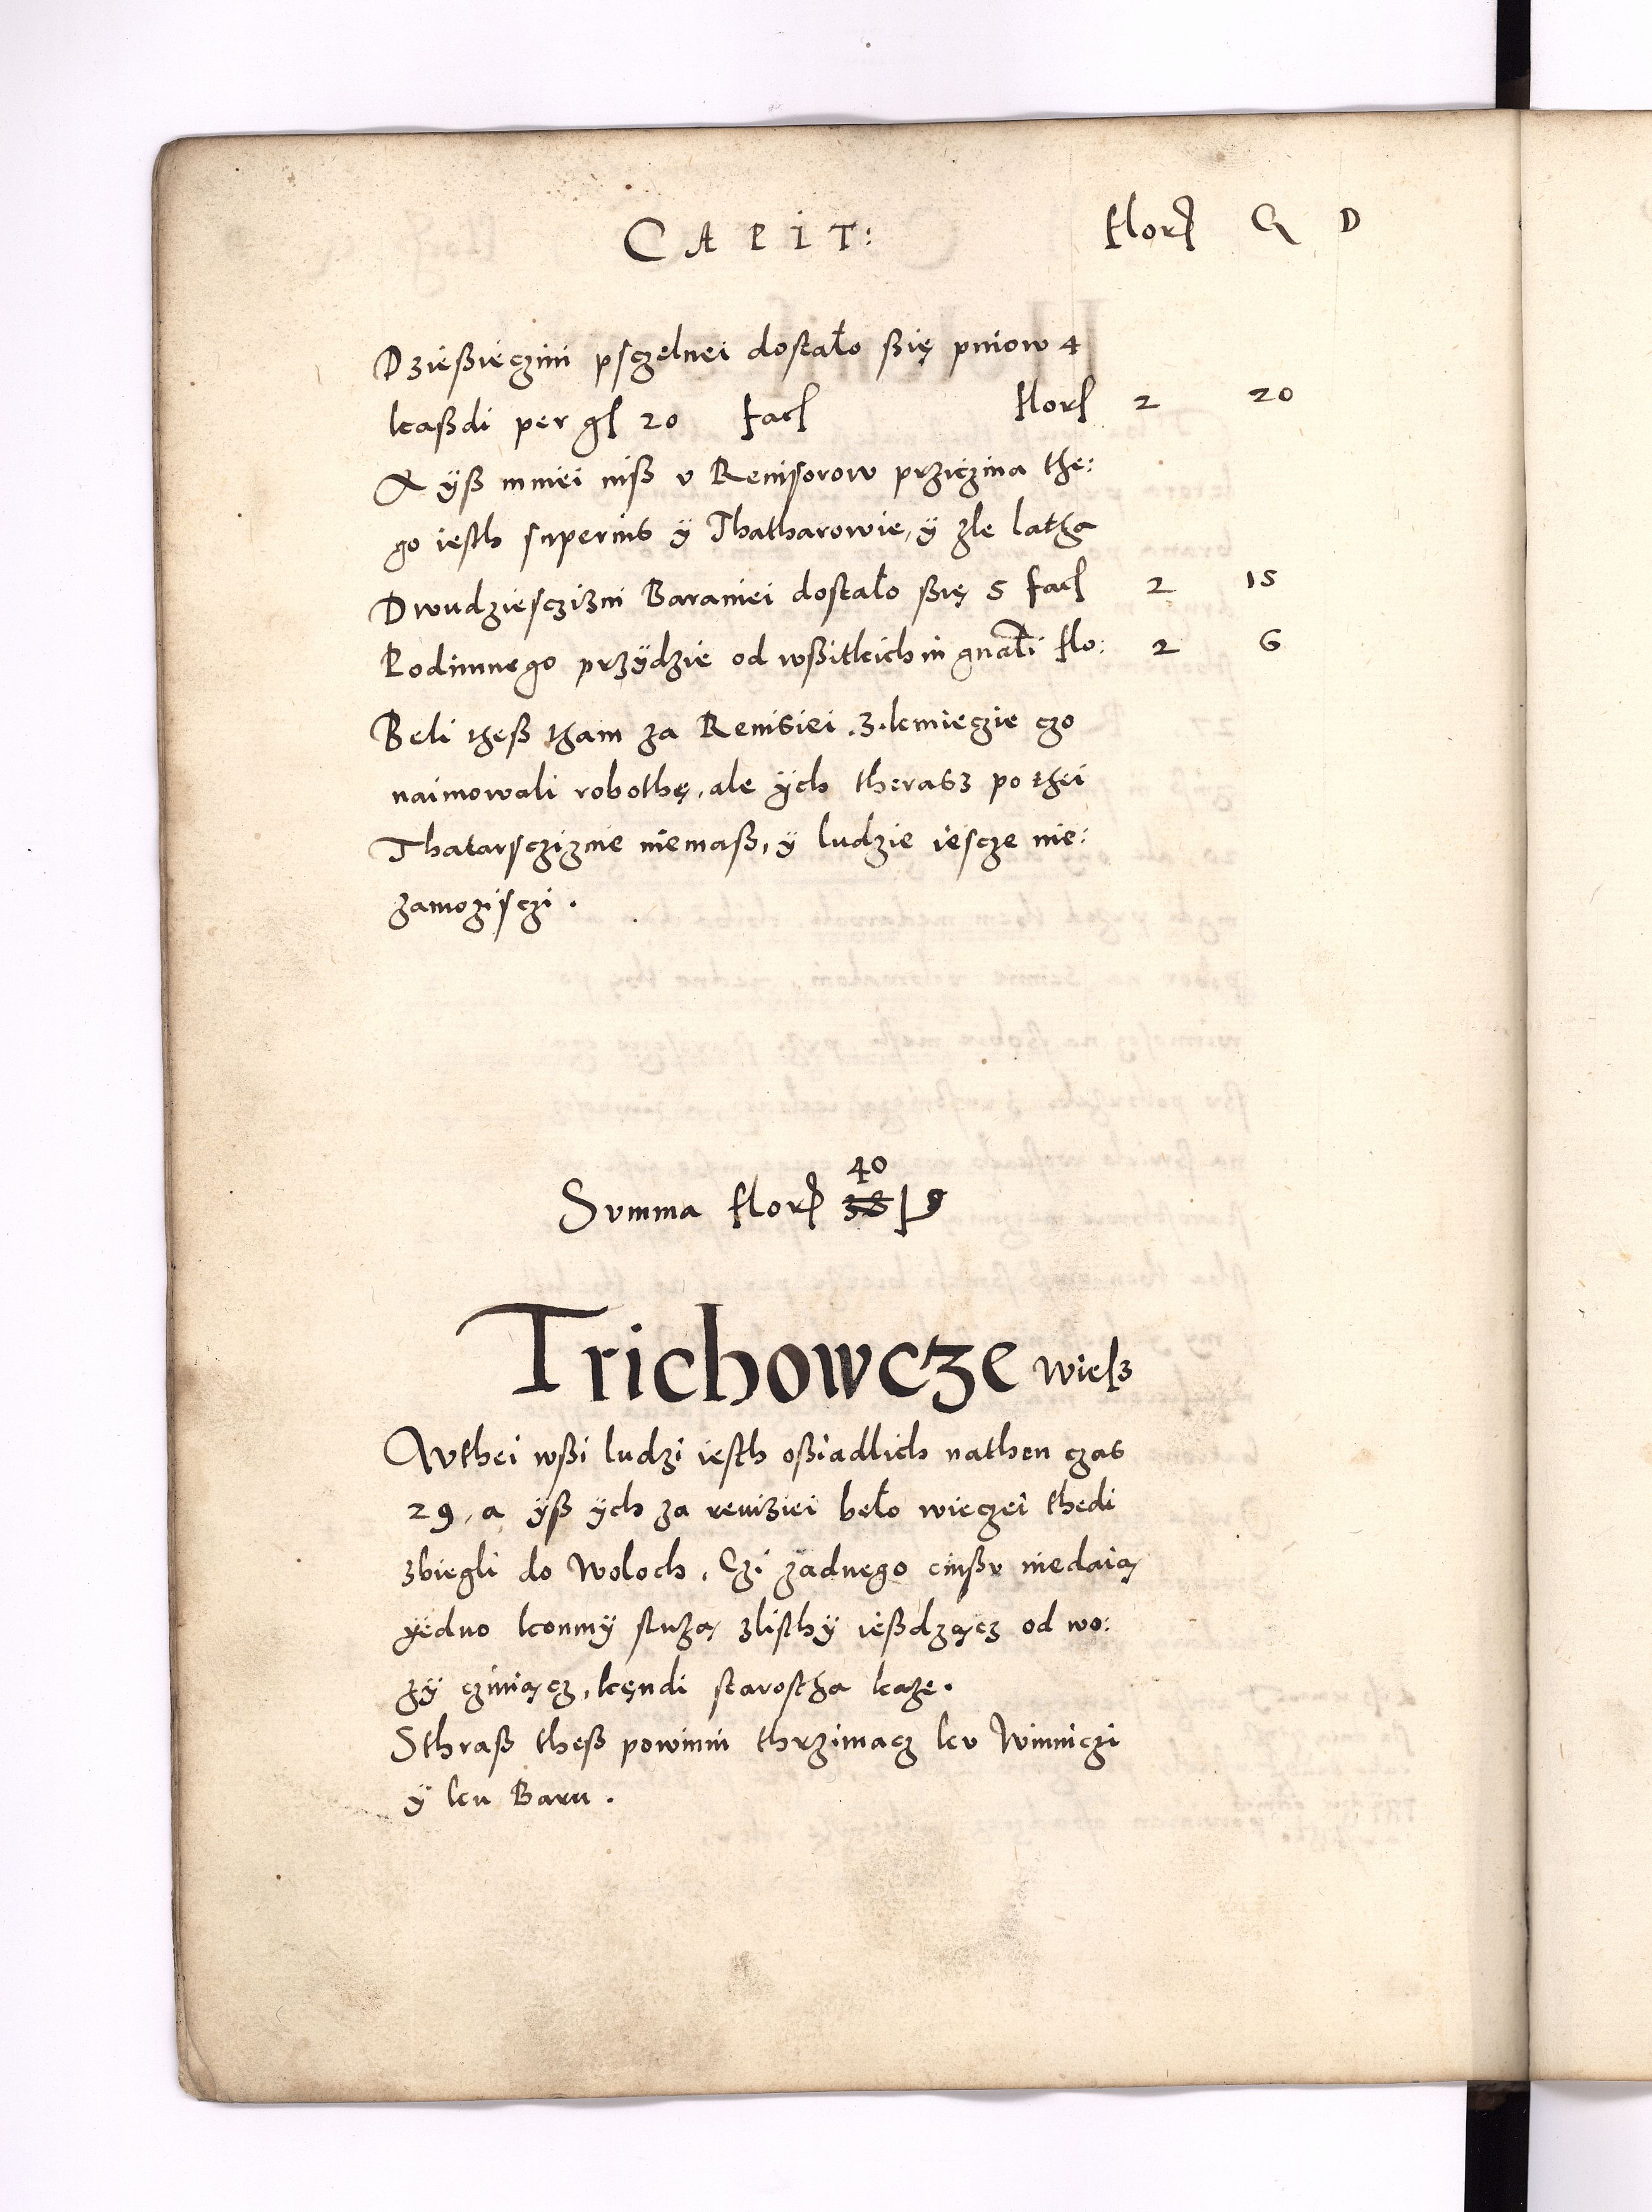 CAPIT: flor G D
Dzießięczini psczelnei dostało ßię pniow 4
kaßdi per gſ 20 facſ florſ 2 20
A yß mniei niß v Reuisorow przicżina the:
go iesth superius ÿ Thatharowie, ÿ zle latha
Dwudziesczizni Baraniei dostało ßię 5 facſ 2 15
Rodimnego przÿdzie od wßitkich in gnałi flo: 2 6
Beli theß tham za Reuisiei .3. kmieczie czo
naimowali robothę, ale ÿch therasz po thei
Thatarscziznie niemaß, ÿ ludzie iescze nie:
zamożisczi .
40
Summa flor 38 | 9
Trichowcze wiesz
Wthei wßi ludzi iesth oßiadlich nathen czas
29, a ÿß ÿch za reuiziei beło wieczei thedi
zbiegli do Woloch, Czi żadnego cinßu niedaią
ÿedno konmÿ służą zlisthÿ ießdząćz od wo:
zÿ cziniącz, kęndi starostha każe.
Sthraß theß powinni thrzimacz ku Winniczi
ÿ ku Baru .